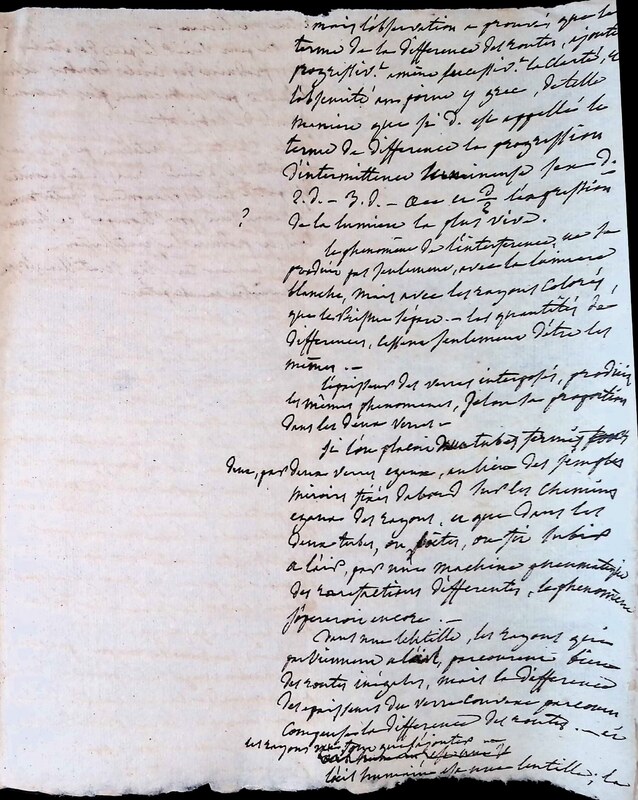 mais l'observation a prouvé, que le
terme de la difference des routes, ajouté
progressiv.t amène successiv.t la clarté, et
l'obscurité
maniere que si d. est appellé le
terme de difference la progression
d'intermittence sera d.
2.d. – 3.d. – l'expression
de la lumiere la plus vive.
?
le phenomène de l'interference, ne se
produit pas seulement, avec la lumiere
blanche, mais avec les rayons colorés,
que le Prisme sépare. – les quantités de
differences, cessent seulement d'être les
mêmes. –
l'épaisseur des verres interposés, produit
les mêmes phenomenes, selon sa proportion
dans les deux verres –
si l'on placoit deux tubes fermés
par deux verres egaux, au lieu des simples
miroirs fixés d'abord sur les chemins
egaux des rayons, et que dans les
deux tubes, on fit subir
à l'air, par une machine pneumatique
des rarefactions differentes, le phenomene
s'opereroit encore. –
Dans une lentille, les rayons qui
parviennent parcourent bien
des routes inégales, mais la difference
des epaisseurs du verre
compense la difference des routes. – ici
les rayons ne font que s'ajouter –
l'œil humain est une lentille; la